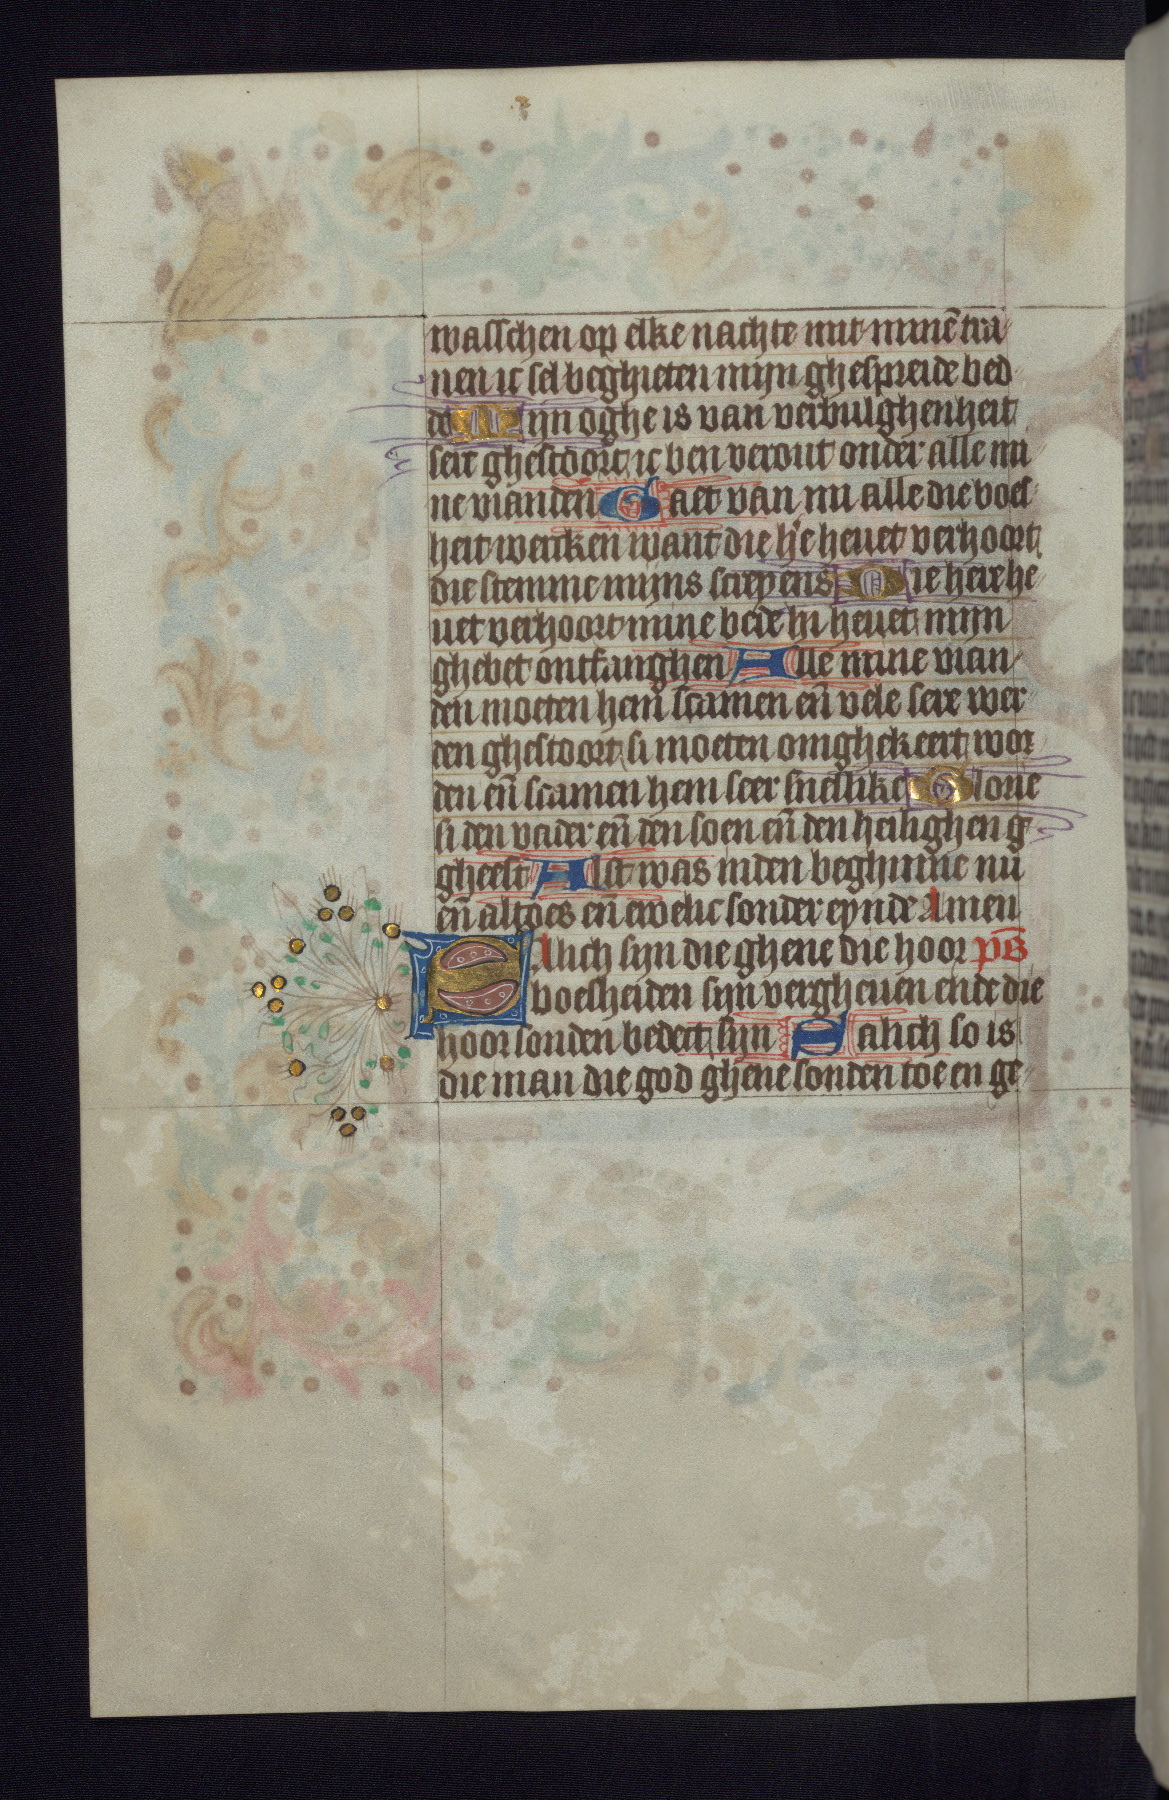 wasschen op elke nachte mit minē tra
nen ic sel beghieten mijn ghespreide bed
de Mijn oghe is van verbulghenheit
seer ghestoort ic ben verout onder alle mi
ne vianden Gaet van mi alle die boes
heit wercken want die h'e heuet verhoort
die stemme mijns screyens Die here he
uet verhoort mine bede hi heuet mijn
ghebet ontfanghen Alle mine vian
den moeten hem scamen eñ vele sere wer
den ghestoort si moeten omghekeert wor
den eñ scamen hem seer snellike Glorie
si den vader eñ den soen eñ den heilighen g
gheest Alst was inden beghinne nu
eñ altoes eñ ewelic sonder eynde Amen
SAlich sijn die ghene die hoor ps̄
boesheiden sijn vergheuen ende die
hoor sonden bedect sijn Salich so is
die man die god ghene sonden toe en ge